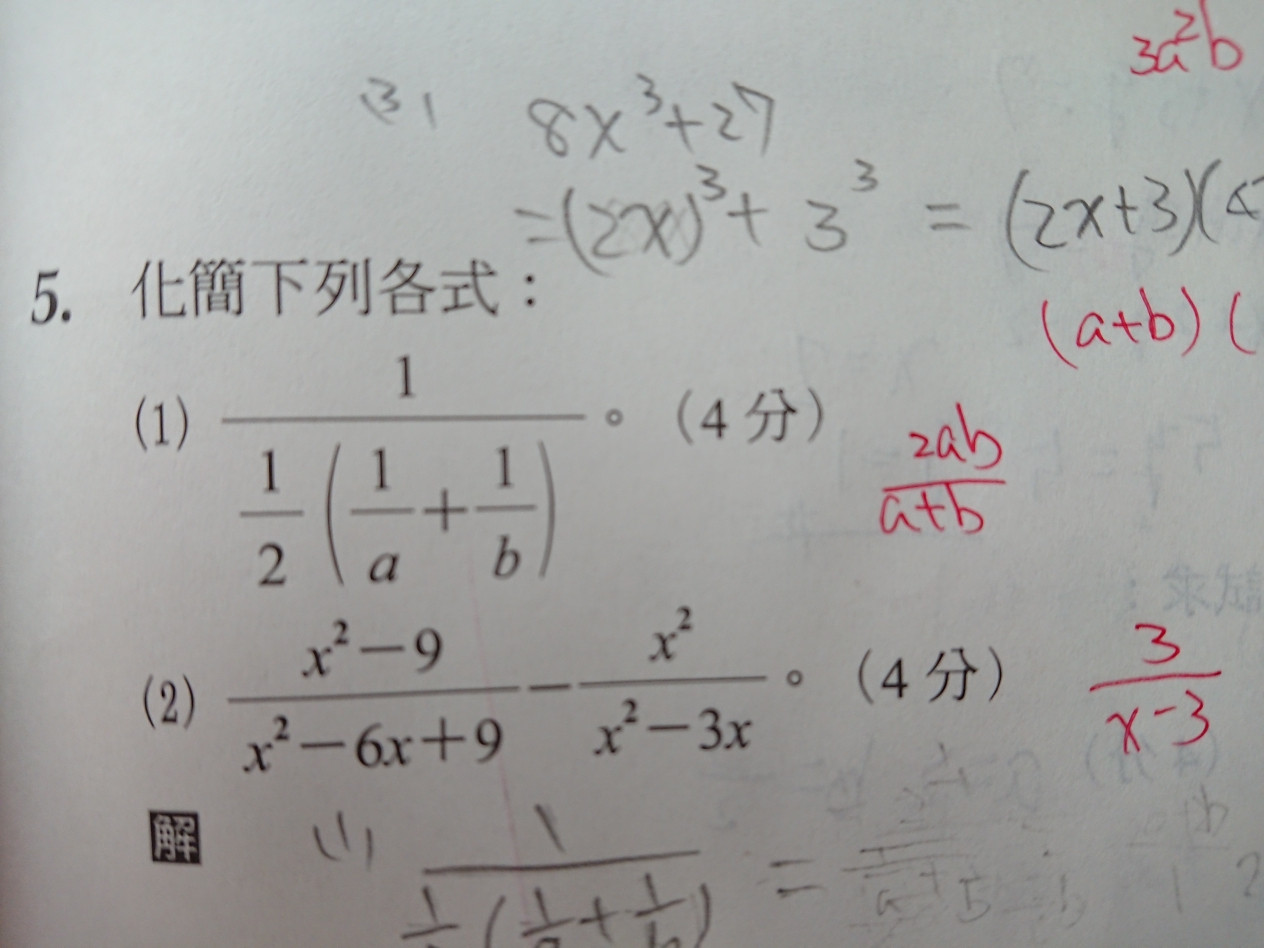 3a²b
(3) 8x³+27
=(2x)³+3³=(2x+3)(4
5. 化簡下列各式：
(a+b)(
(1) 1/(1/2(1/a+1/b))。（4分） 2ab/(a+b)
(2) (x²−9)/(x²−6x+9)−x²/(x²−3x)。（4分） 3/(x-3)
解 (1) 1/(1/2(1/a+1/b)) =